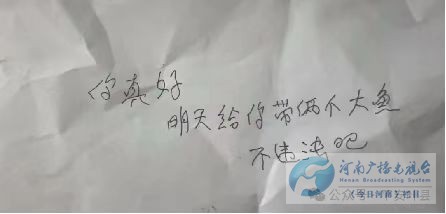 你真好
明天给你带俩个大鱼
不违法吧
河南广播电视台
Henan Broadcasting System
公众号
《今日河南》栏目